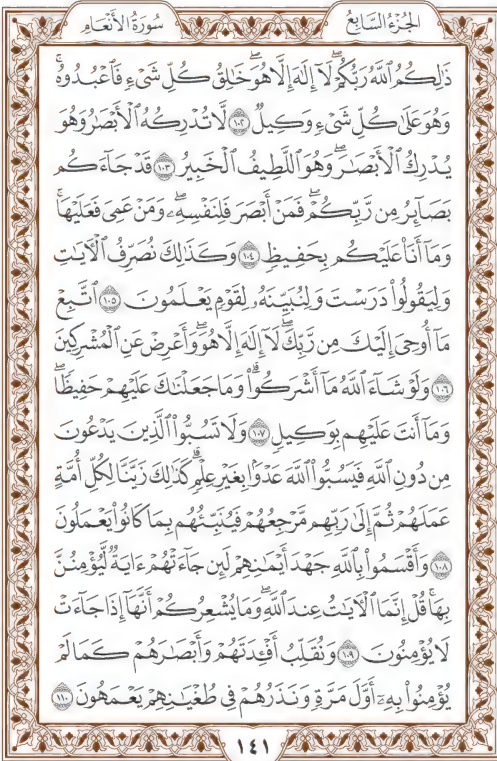 الجزء السابع
سورة الأنعام
ذَٰلِكُمُ ٱللَّهُ رَبُّكُمْ ۖ لَآ إِلَٰهَ إِلَّا هُوَ ۖ خَٰلِقُ كُلِّ شَىْءٍ فَٱعْبُدُوهُ ۚ
وَهُوَ عَلَىٰ كُلِّ شَىْءٍ وَكِيلٌ ١٠٢ لَّا تُدْرِكُهُ ٱلْأَبْصَٰرُ وَهُوَ
يُدْرِكُ ٱلْأَبْصَٰرَ ۖ وَهُوَ ٱللَّطِيفُ ٱلْخَبِيرُ ١٠٣ قَدْ جَآءَكُم
بَصَآئِرُ مِن رَّبِّكُمْ ۖ فَمَنْ أَبْصَرَ فَلِنَفْسِهِۦ ۖ وَمَنْ عَمِىَ فَعَلَيْهَا ۚ
وَمَآ أَنَا۠ عَلَيْكُم بِحَفِيظٍ ١٠٤ وَكَذَٰلِكَ نُصَرِّفُ ٱلْءَايَٰتِ
وَلِيَقُولُوا۟ دَرَسْتَ وَلِنُبَيِّنَهُۥ لِقَوْمٍ يَعْلَمُونَ ١٠٥ ٱتَّبِعْ
مَآ أُوحِىَ إِلَيْكَ مِن رَّبِّكَ ۖ لَآ إِلَٰهَ إِلَّا هُوَ ۖ وَأَعْرِضْ عَنِ ٱلْمُشْرِكِينَ
١٠٦ وَلَوْ شَآءَ ٱللَّهُ مَآ أَشْرَكُوا۟ ۗ وَمَا جَعَلْنَٰكَ عَلَيْهِمْ حَفِيظًا ۖ
وَمَآ أَنتَ عَلَيْهِم بِوَكِيلٍ ١٠٧ وَلَا تَسُبُّوا۟ ٱلَّذِينَ يَدْعُونَ
مِن دُونِ ٱللَّهِ فَيَسُبُّوا۟ ٱللَّهَ عَدْوًۢا بِغَيْرِ عِلْمٍ ۗ كَذَٰلِكَ زَيَّنَّا لِكُلِّ أُمَّةٍ
عَمَلَهُمْ ثُمَّ إِلَىٰ رَبِّهِم مَّرْجِعُهُمْ فَيُنَبِّئُهُم بِمَا كَانُوا۟ يَعْمَلُونَ
١٠٨ وَأَقْسَمُوا۟ بِٱللَّهِ جَهْدَ أَيْمَٰنِهِمْ لَئِن جَآءَتْهُمْ ءَايَةٌ لَّيُؤْمِنُنَّ
بِهَا ۚ قُلْ إِنَّمَا ٱلْءَايَٰتُ عِندَ ٱللَّهِ ۖ وَمَا يُشْعِرُكُمْ أَنَّهَآ إِذَا جَآءَتْ
لَا يُؤْمِنُونَ ١٠٩ وَنُقَلِّبُ أَفْـِٔدَتَهُمْ وَأَبْصَٰرَهُمْ كَمَا لَمْ
يُؤْمِنُوا۟ بِهِۦٓ أَوَّلَ مَرَّةٍ وَنَذَرُهُمْ فِى طُغْيَٰنِهِمْ يَعْمَهُونَ ١١٠
١٤١